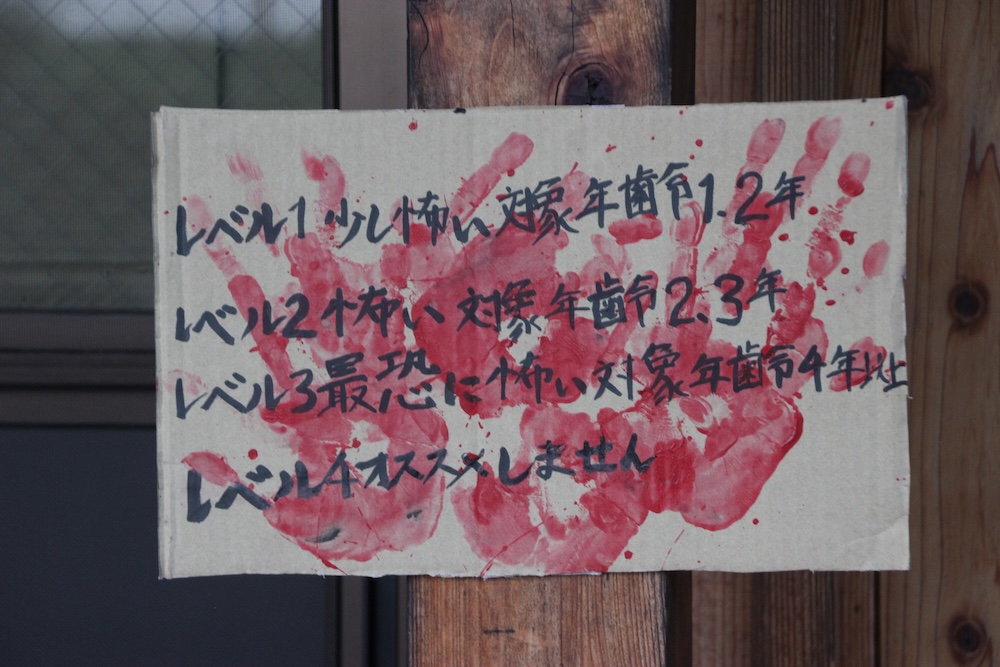 レベル1少し怖い対象年歯令1.2年
レベル2怖い対象年歯令2.3年
レベル3最恐に怖い対象年歯令4年以上
レベル4オススメしません